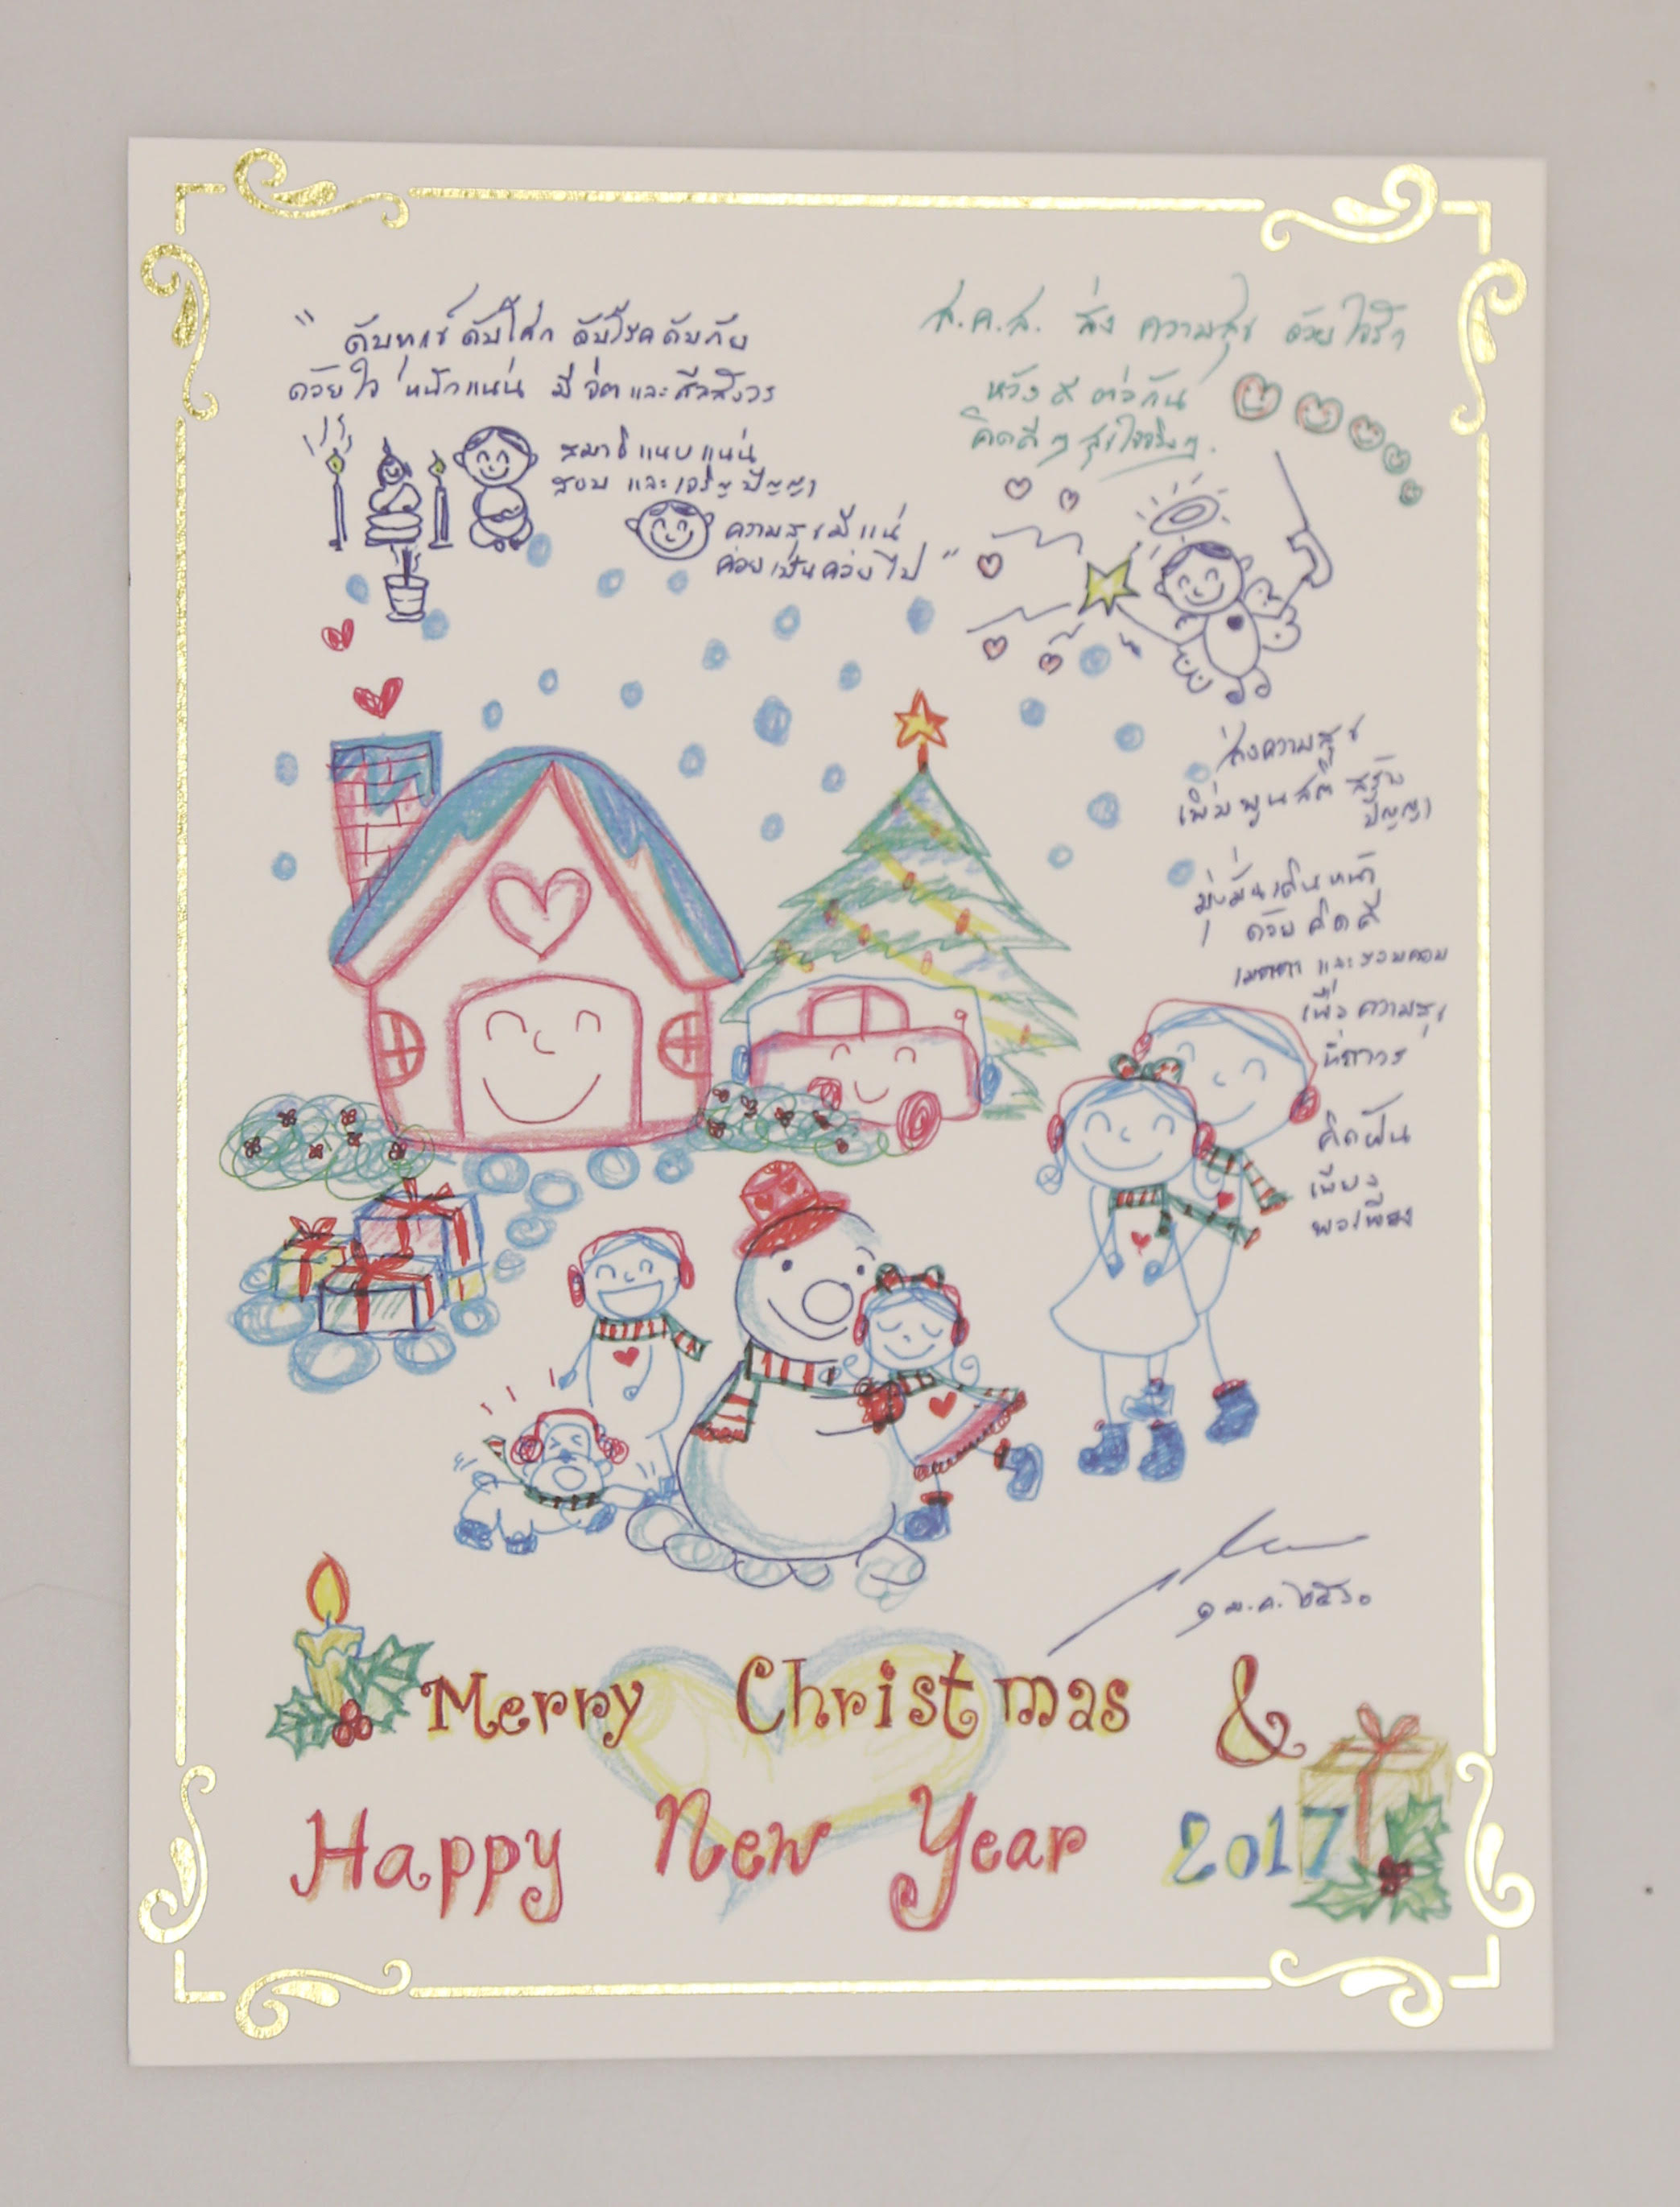 "ดับทุกข์ ดับโศก ดับโรคดับภัย
ด้วยใจ หนักแน่น มีจิตและศีลสังวร
สมาธิแนบแน่น
สงบ และเจริญปัญญา
ความสุขมีแน่
ค่อยเป็นค่อยไป"
ส.ค.ส. ส่ง ความสุข ด้วยใจรัก
หวังดีต่อกัน
คิดดีๆ สุขใจจริงๆ.
ส่งความสุข
เพิ่มพูนสติ สร้าง
ปัญญา
มุ่งมั่นเดินหน้า
ด้วยคิดดี
เมตตา และ
เพื่อความสุข
ที่ถาวร
คิดฝัน
เพียง
พอเพียง
๑ ม.ค. ๒๕๖๐
Merry Christmas &
Happy New Year 2017